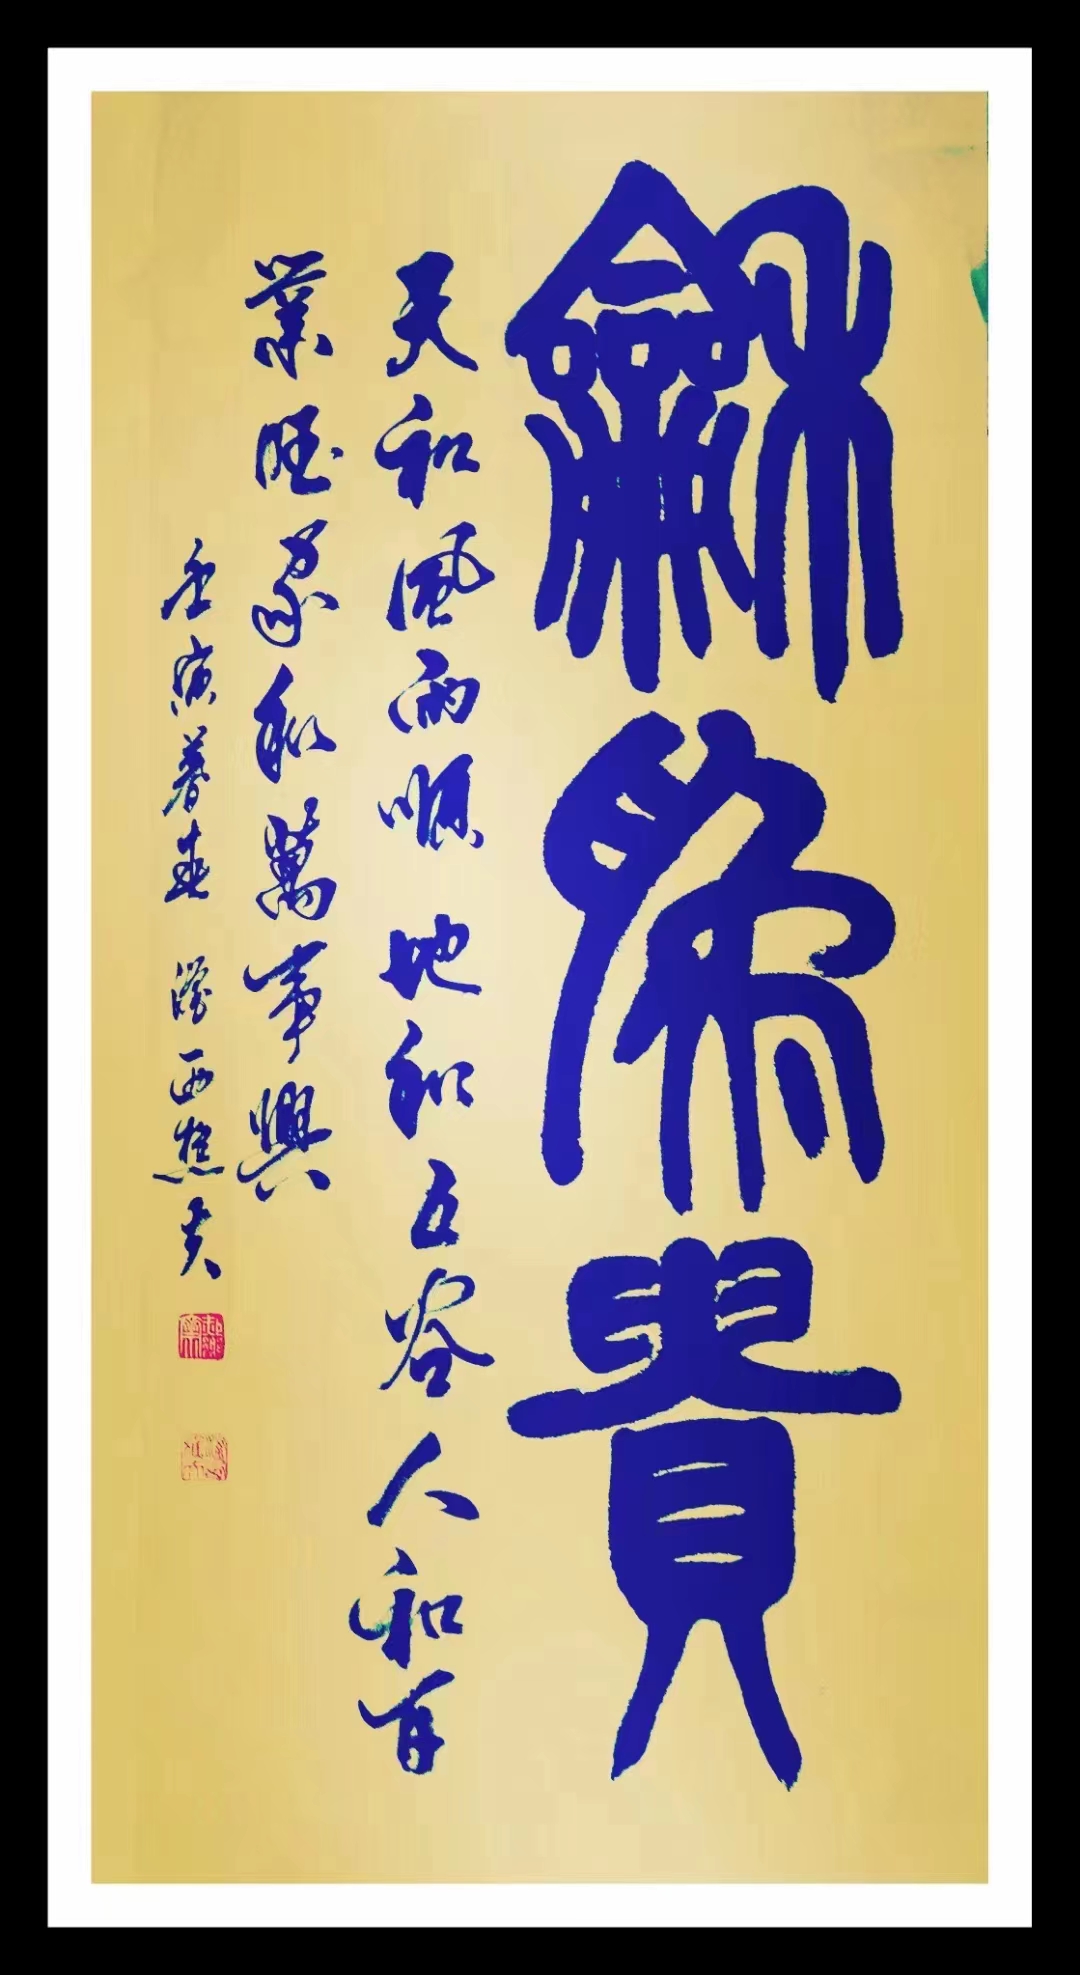 龢為貴
天和風雨順地和五谷人和百
業旺家和萬事興
壬寅暮春 西樵夫